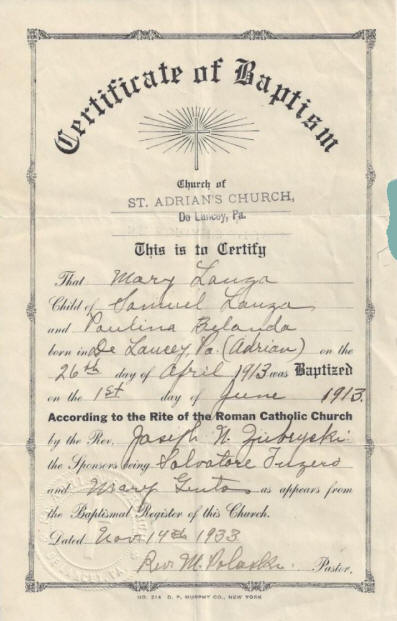 Certificate of Baptism
Church of
ST. ADRIAN'S CHURCH,
De Lancey, Pa.
This is to Certify
That Mary Lanza
Child of Samuel Lanza
and Paulina Belanda
born in De Lancey, Pa. (Adrian) on the
26th day of April 1913 was Baptized
on the 1st day of June 1913.
According to the Rite of the Roman Catholic Church
by the Rev. Joseph N.
the Sponsors being Salvatore
and Mary as appears from
the Baptismal Register of this Church.
Dated Nov. 14th 1933
Rev. M. Polaski. Pastor.
NO. 214 D. P. MURPHY CO., NEW YORK